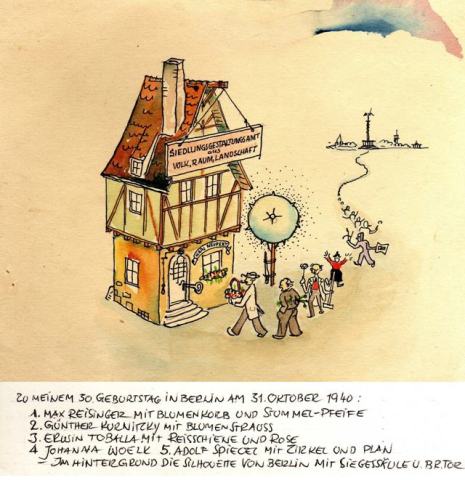 SIEDLUNGSGESTALTUNGSAMT
VOLK, RAUM, LANDSCHAFT
ZU MEINEM 30. GEBURTSTAG IN BERLIN AM 31. OKTOBER 1940:
1. MAX REISINGER MIT BLUMENKORB UND STUMMEL-PFEIFE
2. GÜNTHER KURNITZKY MIT BLUMENSTRAUSS
3. ERWIN TOBALLA MIT REISSCHIENE UND ROSE
4 JOHANNA WOELK 5. ADOLF SPIEGEL MIT ZIRKEL UND PLAN
– IM HINTERGRUND DIE SILHOUETTE VON BERLIN MIT SIEGESSÄULE U. BR.TOR